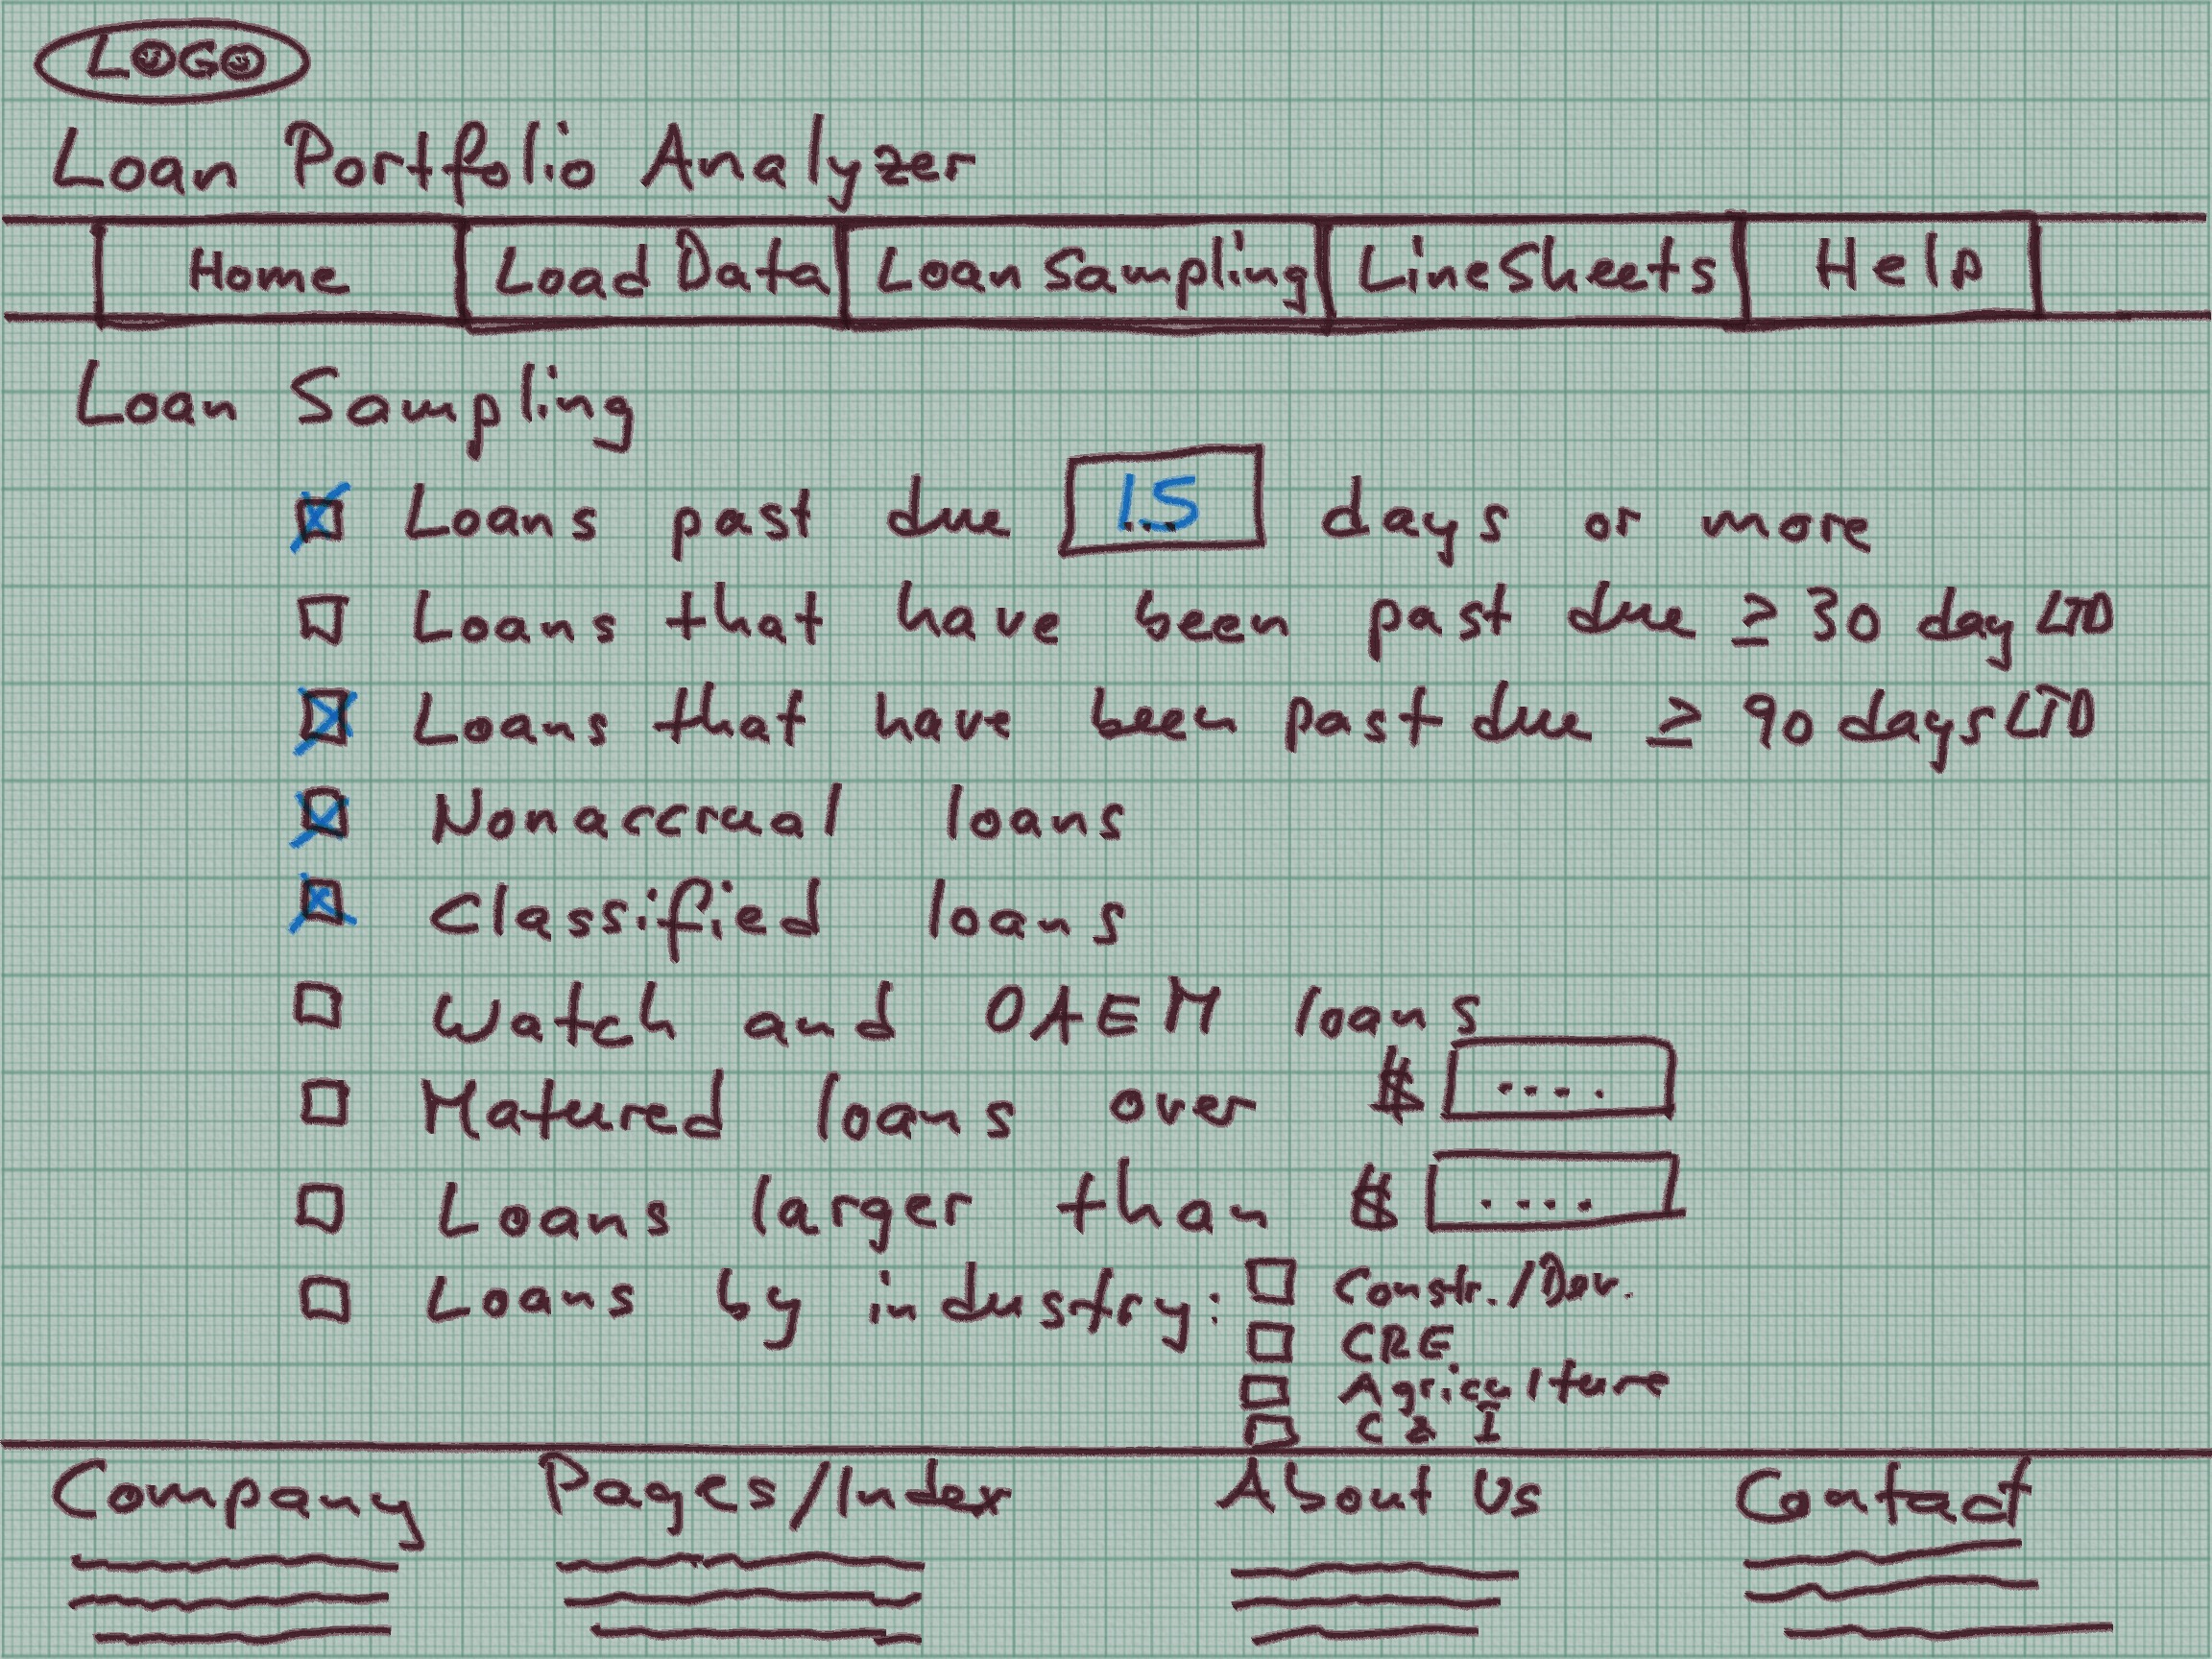 LOGO
Loan Portfolio Analyzer
Home Load Data Loan Sampling LineSheets Help
Loan Sampling
Loans past due 15 days or more
Loans that have been past due ≥ 30 day LTD
Loans that have been past due ≥ 90 days LTD
Nonaccrual loans
Classified loans
Watch and OAEM loans
Matured loans over $ ....
Loans larger than $ ....
Loans by industry: Constr./Dev.
CRE
Agriculture
C & I
Company Pages/Index About Us Contact